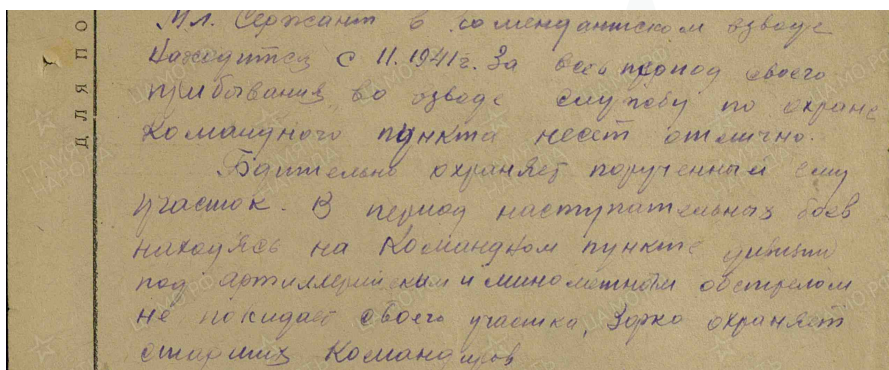 Мл. Сержант в комендантском взводе
находится с 11.1941г. За весь период своего
прибывания во взводе службу по охране
командного пункта несет отлично.
Бдительно охраняет порученный ему
участок. В период наступательных боев
находясь на командном пункте дивизии
под артиллерийским и минометным обстрелом
не покидает своего участка, зорко охраняет
старших командиров
для по